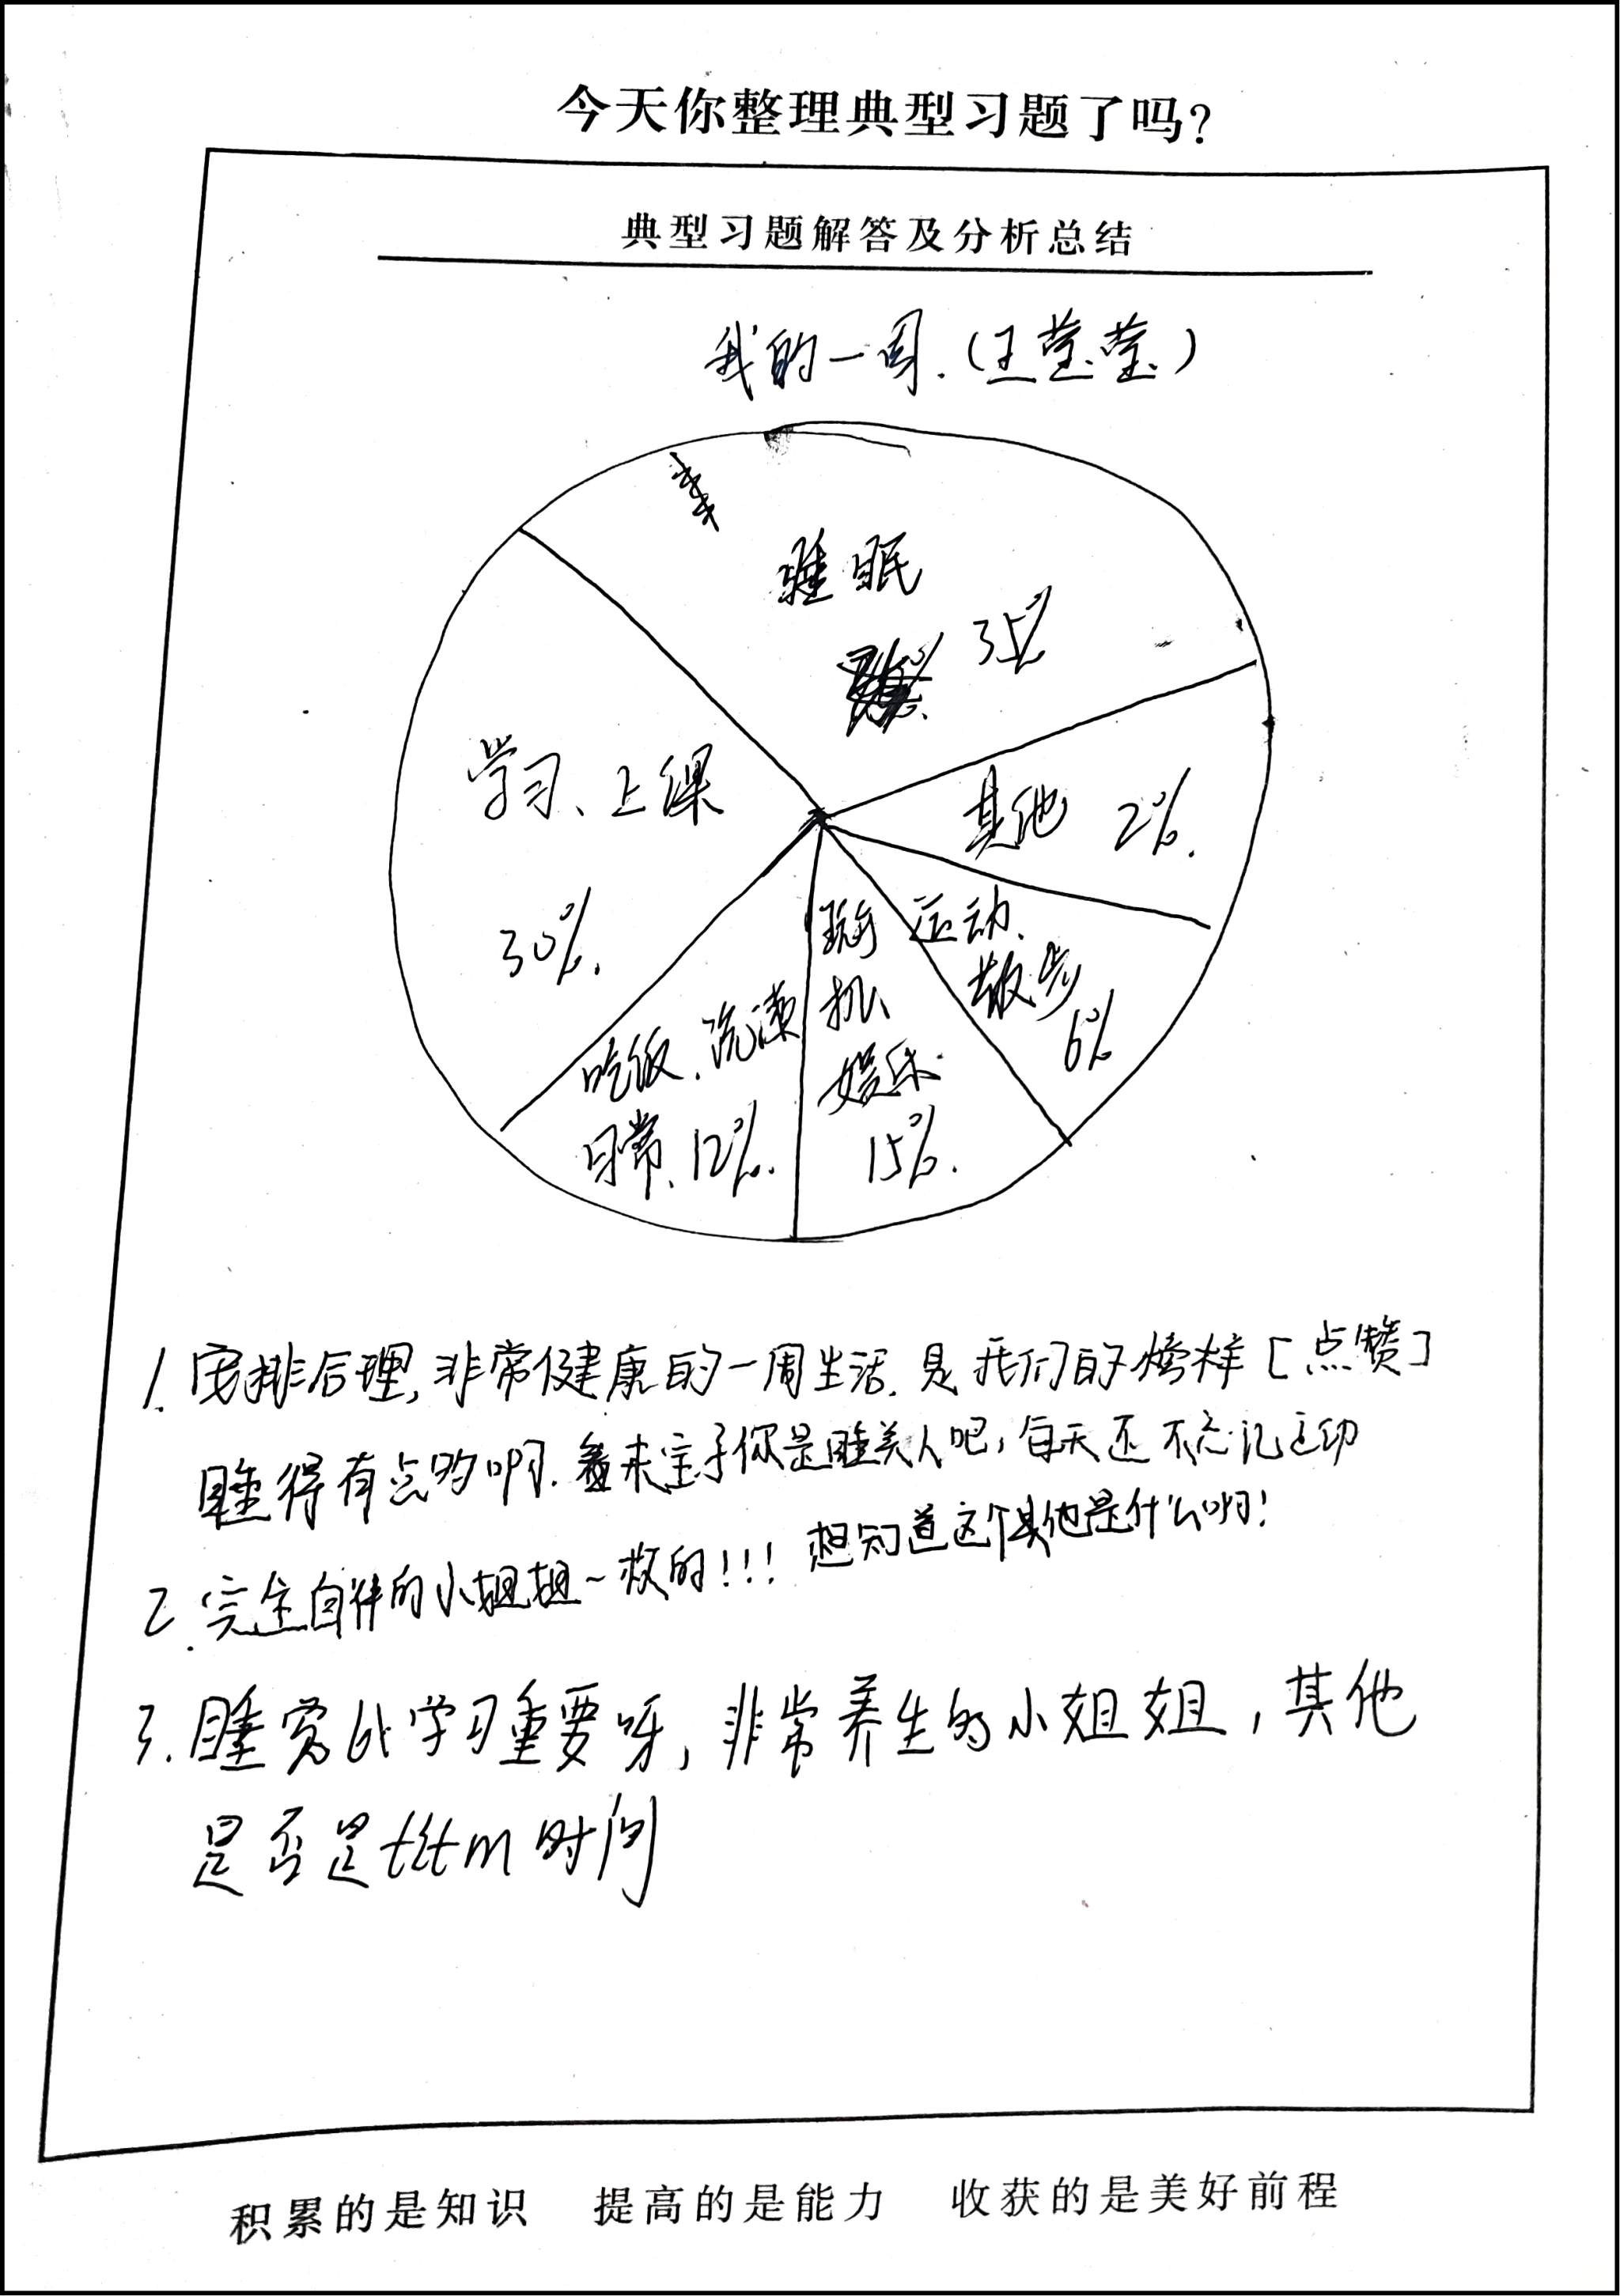 今天你整理典型习题了吗?
典型习题解答及分析总结
我的一周.(王莹莹)
睡眠
35%
学习、上课
30%.
其他 2%.
运动.
散步
6%
玩手
机
娱乐
15%.
吃饭、洗漱
日常、12%.
1. 安排合理,非常健康的一周生活.是我们的榜样[点赞]
睡得有点多啊.看来宝子你是睡美人吧,每天还不忘记运动
2.完全自律的小姐姐~救的!!! 想知道这个其他是什么啊!
3.睡觉比学习重要呀,非常养生的小姐姐,其他
是否是 时间
积累的是知识 提高的是能力 收获的是美好前程